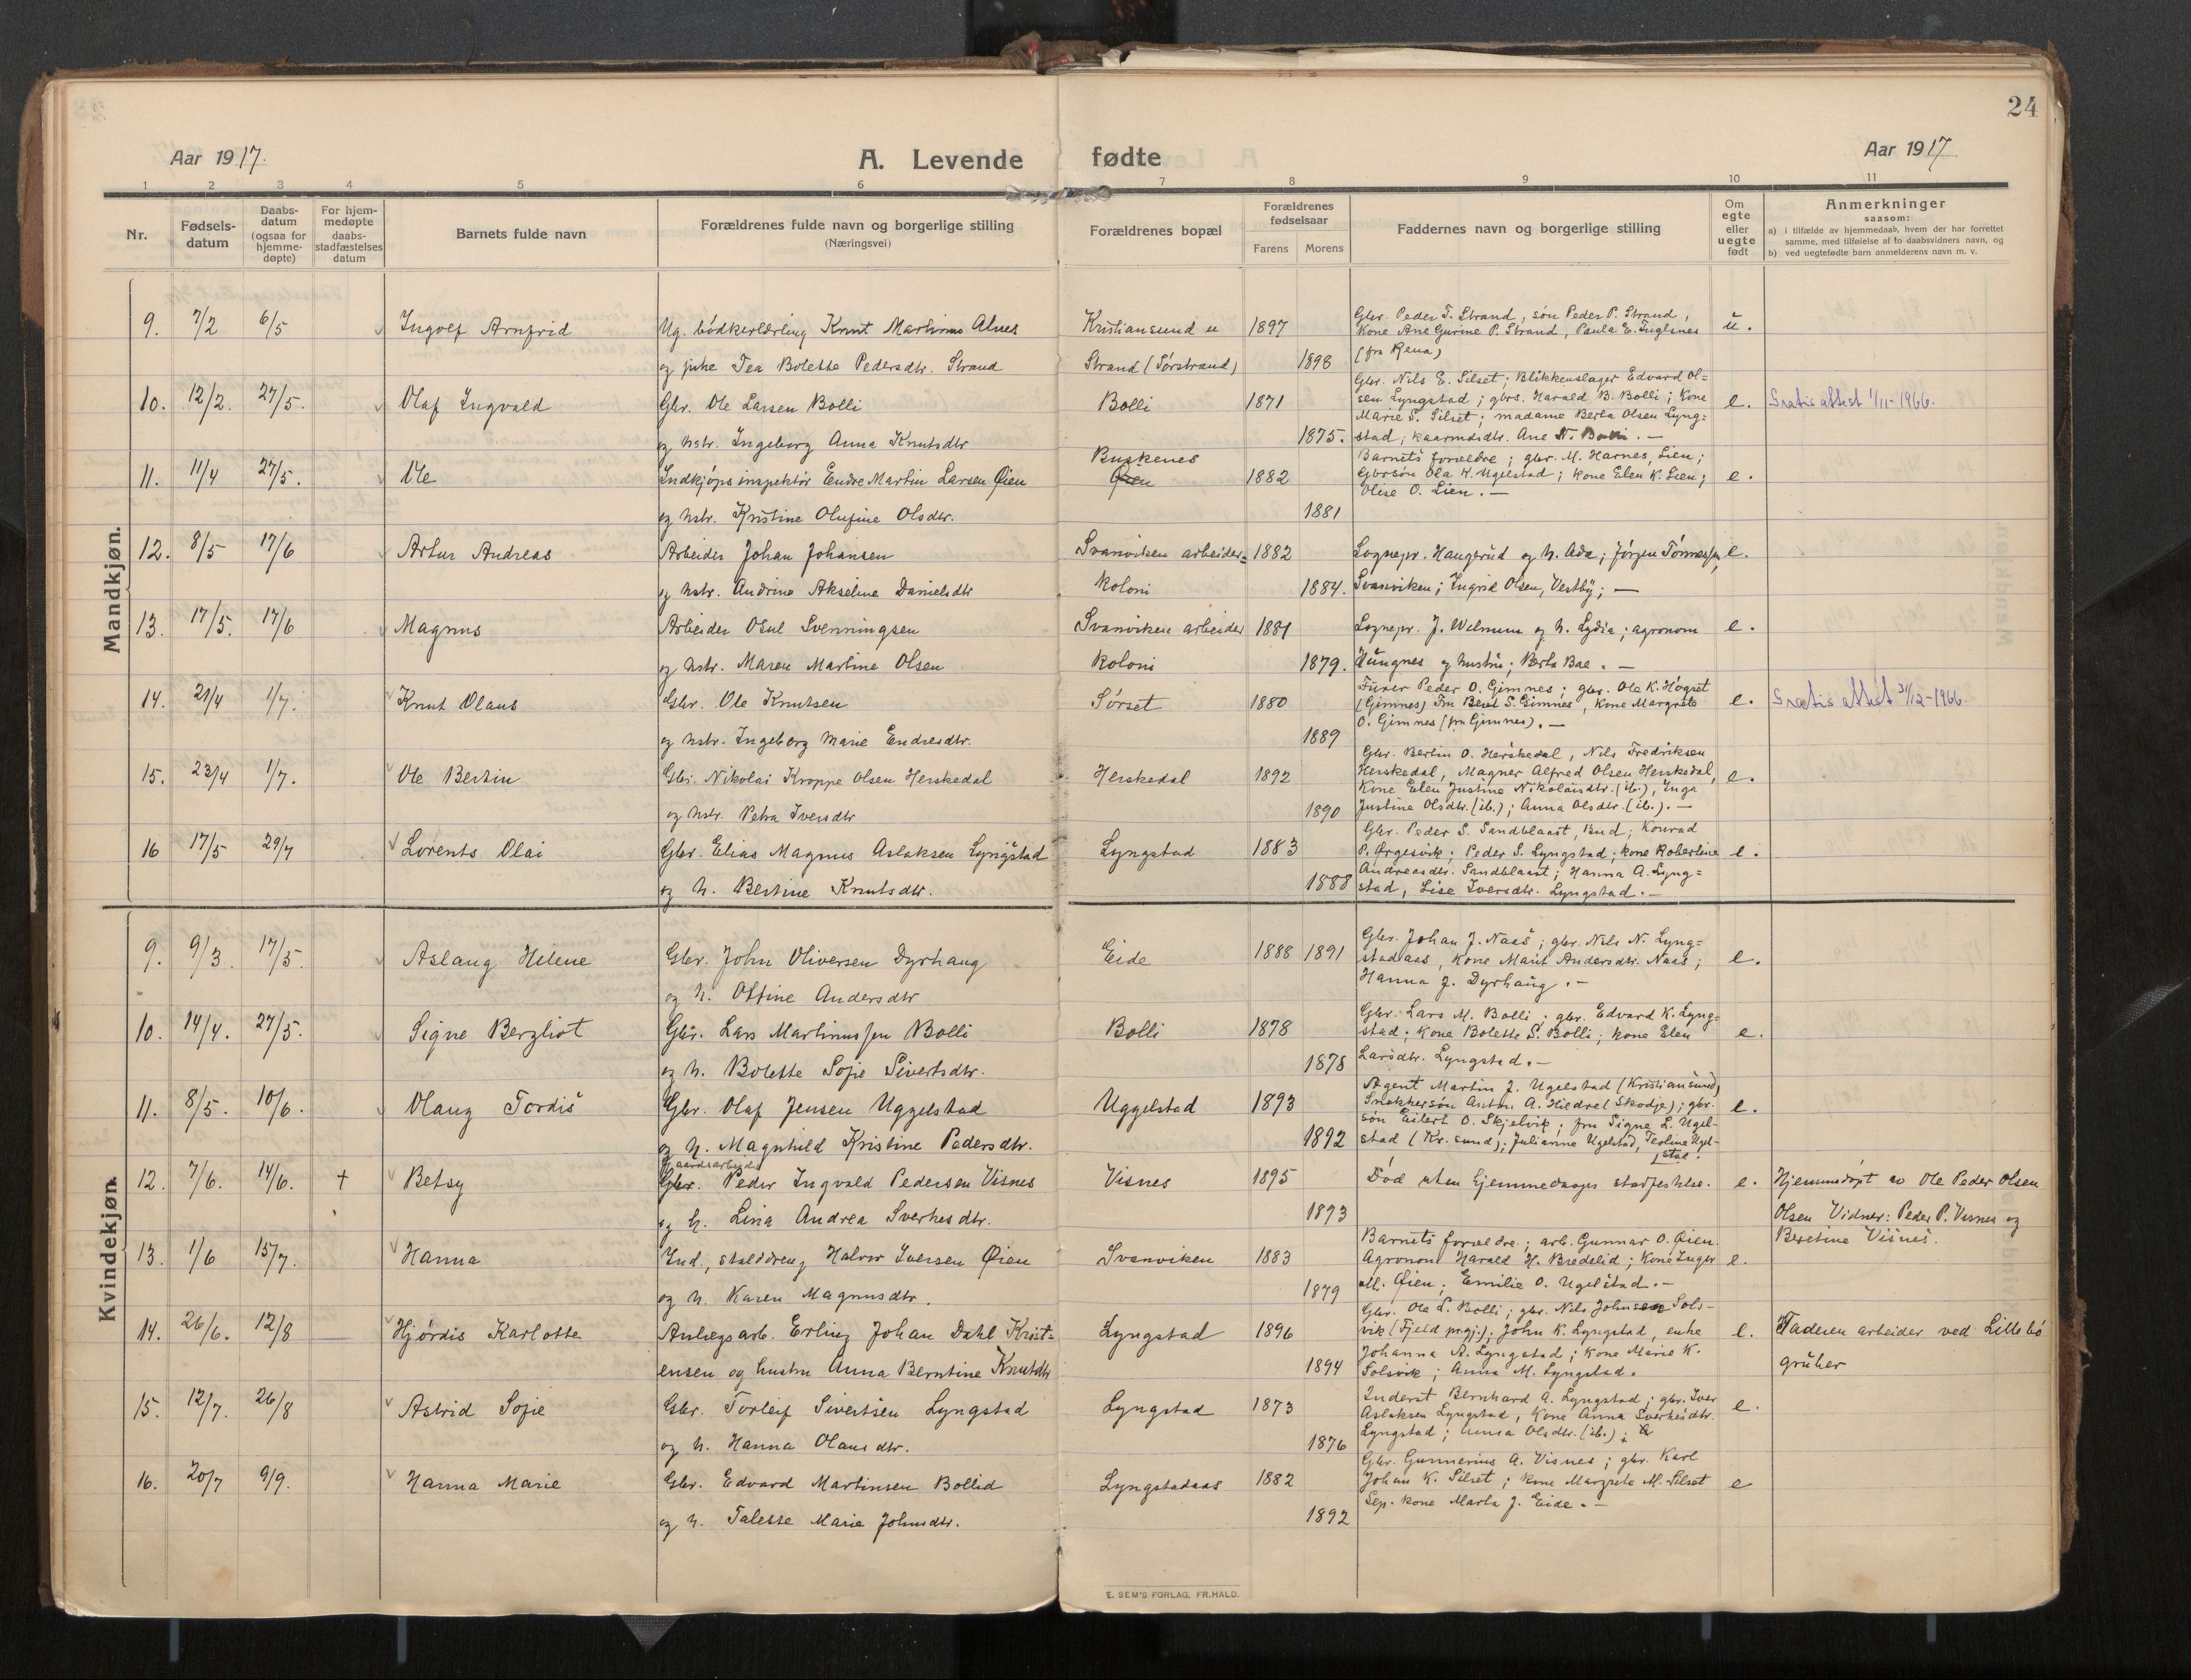 24
Aar 1917.
A. Levende fødte
Aar 1917
1 2 3 4 5 6 7 8 9 10 11
Nr.
Fødsels-
datum
Daabs-
datum
(ogsaa for
hjemme-
døpte)
For hjem-
medøpte
daabs-
stadfæstelses
datum
Barnets fulde navn
Forældrenes fulde navn og borgerlige stilling
(Næringsvei)
Forældrenes bopæl
Forældrenes
fødselsaar
Farens Morens
Faddernes navn og borgerlige stilling
Om
egte
eller
uegte
født
Anmerkninger
saasom:
a) i tilfælde av hjemmedaab, hvem der har forrettet
samme, med tilføielse af to daabsvidners navn, og
b) ved uegtefødte barn anmelderens navn m. v.
Mandkjøn.
9. 7/2 6/5 Ingolf Arnfrid Ug. bødkerlærling Knut Martinus Alnes Kristiansund n 1897 Gbr. Peder T. Strand, søn Peder P. Strand,
Kone Ane Gurine P. Strand, Paula E. Fuglsnes u.
og pike Tea Bolette Pedersdtr. Strand Strand (Sørstrand) 1898 (fra Rena)
10. 12/2. 27/5. Olaf Ingvald Gbr. Ole Larsen Bolli Bolli 1871 Gbr. Nils E. Silset; Blikkenslager Edvard Ol=
sen Lyngstad; gbrs. Harald B. Bolli; Kone e. Gratis attest 1/11-1966.
Marie S. Silset; madame Berta Olsen Lyng=
og hstr. Ingeborg Anna Knutsdtr 1875. stad; kaarmdsdtr. Ane N. Bolli. —
11. 11/4 27/5. Ole Indkjøpsinspektør Endre Martin Larsen Øien Buskenes
Øien 1882 Barnets forældre; gbr. M. Harnes, Lien;
Gbrsøn Ola K. Ugelstad; kone Elen K. Lien; e.
Olise O. Lien. —
og hstr. Kristine Olufine Olsdtr. 1881
12. 8/5 17/6 Artur Andreas Arbeider Johan Johansen Svanviken arbeider= 1882 Sognepr. Haugerud og h. Ada; Jørgen Tønnessen, e.
og hstr. Andrine Akseline Danielsdtr koloni 1884. Svanviken; Ingrid Olsen, Vestby; —
13. 17/5. 17/6 Magnus Arbeider Osul Svenningsen Svanviken arbeider 1881 Sognepr. J. Welmun og h. Lydia; agronom e.
og hstr. Maren Martine Olsen koloni 1879. Hungnes og hustru; Berta Bae. —
14. 21/4 1/7. Knut Olaus Gbr. Ole Knutsen Sørset 1880 Furer Peder O. Gimnes; gbr. Ole K. Høgset
(Gimnes) Fru Beret S. Gimnes, Kone Margrete e. Gratis attest 31/12-1966.
O. Gimnes (fra Gimnes). —
og hstr. Ingeborg Marie Endresdtr. 1889
15. 23/4 1/7. Ole Bertin Gbr. Nikolai Kroppe Olsen Herskedal Herskedal 1892 Gbr. Bertin O. Herskedal, Nils Fredriksen
Herskedal, Magner Alfred Olsen Herskedal, e.
Kone Elen Justine Nikolaisdtr. (ib.), Inga
og hstr. Petra Iversdtr 1890 Justine Olsdtr. (ib.); Anna Olsdtr. (ib.). —
16 17/5 29/7 Lorents Olai Gbr. Elias Magnus Aslaksen Lyngstad Lyngstad 1883 Gbr. Peder S. Sandblaast, Bud; Konrad
P. Ørgesvik; Peder S. Lyngstad; kone Robertine e.
Andreasdtr. Sandblaast; Hanna A. Lyng=
og h. Bertine Knutsdtr. 1888 stad, Lise Iversdtr. Lyngstad. —
Kvindekjøn.
9. 9/3. 17/5. Aslaug Helene Gbr. John Oliversen Dyrhaug Eide 1888 1891 Gbr. Johan J. Naas; gbr. Nils N. Lyng=
stadaas, kone Marit Andersdtr. Naas; e.
og h. Oftine Andersdtr Hanna J. Dyrhaug. —
10. 14/4. 27/5. Signe Bergliot Gbr. Lars Martinussen Bolli Bolli 1878 Gbr. Lars M. Bolli; gbr. Edvard K. Lyng=
stad; kone Bolette S. Bolli; kone Elen e.
og h. Bolette Sofie Sivertsdtr. 1878 Larsdtr. Lyngstad. —
11. 8/5. 10/6. Olaug Tordis Gbr. Olaf Jensen Uggelstad Uggelstad 1893 Agent Martin J. Ugelstad (Kristiansund)
Snekkersøn Anton A. Hildre (Skodje); gbr. e.
søn Eilert O. Skjelvik; fru Signe L. Ugel-
og h. Magnhild Kristine Pedersdtr. 1892 stad (Kr.sund); Julianne Ugelstad, Teoline Ugel-
stad.
12. 7/6. 14/6. † Betsy Gaardsarbeider
Gbr. Peder Ingvald Pedersen Visnes Visnes 1895 Død uten hjemmedaaps stadfestelse. e. Hjemmedøpt av Ole Peder Olsen
og h. Lina Andrea Sverkesdtr. 1893 Olsen Vidner: Peder P. Visnes og
Beretine Visnes.
13. 1/6 15/7. Hanna Ind., stalddreng Halvor Iversen Øien Svanviken 1883 Barnets forældre; arb. Gunnar O. Øien.
Agronom Harald H. Bredelid; Kone Inger e.
og h. Karen Magnusdtr. 1879 M. Øien; Emilie O. Ugelstad. —
14. 26/6. 12/8 Hjørdis Karlotte Anlægsarb. Erling Johan Dahl Krist= Lyngstad 1896 Gbr. Ole L. Bolli; gbr. Nils Johnsen Sols-
vik (Fjeld prgj.); John K. Lyngstad, enke e. Faderen arbeider ved Lillebø
Johanna A. Lyngstad; kone Marie K. gruber
ensen og hustru Anna Berntine Knutsdtr 1894 Solsvik; Anna M. Lyngstad.
15. 12/7. 26/8 Astrid Sofie Gbr. Torleif Sivertsen Lyngstad Lyngstad 1873 Inderst Bernhard A. Lyngstad; gbr. Iver
Aslaksen Lyngstad, Kone Anna Sverkesdtr. e.
og h. Hanna Olausdtr. 1876 Lyngstad; Anna Olsdtr. (ib.);
16. 20/7 9/9. Hanna Marie Gbr. Edvard Martinsen Bollid Lyngstadaas 1882 Gbr. Gunnerius A. Visnes; gbr. Karl
Johan K. Silset; kone Margrete M. Silset e
Sep. kone Marta J. Eide. —
og h. Talette Marie Johnsdtr. 1892
E. SEM'S FORLAG, FR.HALD.